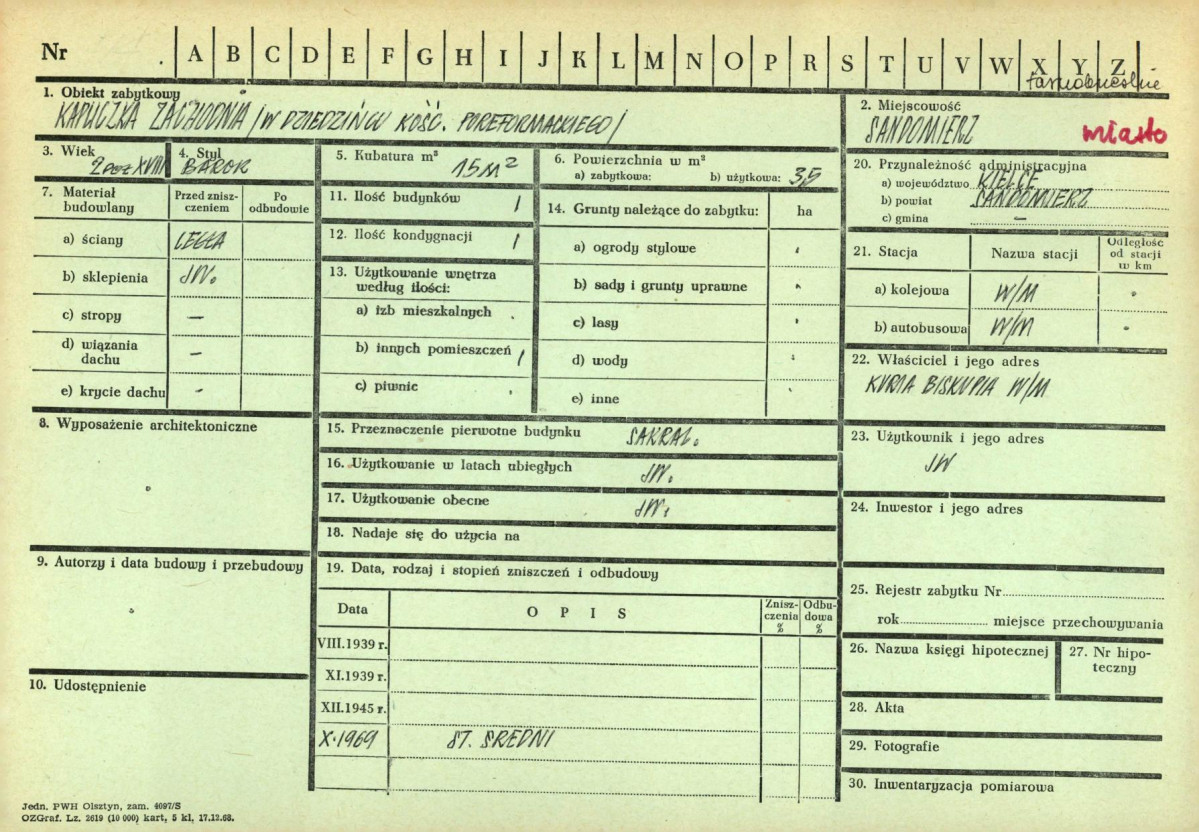 Nr A B C D E F G H I J K L M N O P R S T U V W X Y Z
tarnobrzeskie
1. Obiekt zabytkowy
KAPLICZKA ZACHODNIA /W DZIEDZIŃCU KOŚC. POREFORMACKIEGO/
2. Miejscowość
SANDOMIERZ miasto
3. Wiek
2 poł XVIII
4. Styl
BAROK
5. Kubatura m³
15 M²
6. Powierzchnia w m²
a) zabytkowa: b) użytkowa: 3,5
7. Materiał budowlany
Przed zniszczeniem
Po odbudowie
a) ściany CEGŁA
b) sklepienia JW.
c) stropy —
d) wiązania dachu —
e) krycie dachu -
8. Wyposażenie architektoniczne
9. Autorzy i data budowy i przebudowy
10. Udostępnienie
11. Ilość budynków 1
12. Ilość kondygnacji 1
13. Użytkowanie wnętrza według ilości:
a) izb mieszkalnych
b) innych pomieszczeń 1
c) piwnic
14. Grunty należące do zabytku: ha
a) ogrody stylowe
b) sady i grunty uprawne
c) lasy
d) wody
e) inne
15. Przeznaczenie pierwotne budynku SAKRAL.
16. Użytkowanie w latach ubiegłych JW.
17. Użytkowanie obecne JW.
18. Nadaje się do użycia na
19. Data, rodzaj i stopień zniszczeń i odbudowy
Data OPIS Zniszczenia % Odbudowa %
VIII.1939 r.
XI.1939 r.
XII.1945 r.
X.1969 ST. ŚREDNI
20. Przynależność administracyjna
a) województwo KIELCE
b) powiat SANDOMIERZ
c) gmina —
21. Stacja Nazwa stacji Odległość od stacji w km
a) kolejowa W/M
b) autobusowa W/M
22. Właściciel i jego adres
KURIA BISKUPIA W/M
23. Użytkownik i jego adres
JW
24. Inwestor i jego adres
25. Rejestr zabytku Nr
rok miejsce przechowywania
26. Nazwa księgi hipotecznej
27. Nr hipoteczny
28. Akta
29. Fotografie
30. Inwentaryzacja pomiarowa
Jedn. PWH Olsztyn, zam. 4097/S
OZGraf. Lz. 2619 (10 000) kart, 5 kl, 17.12.68.